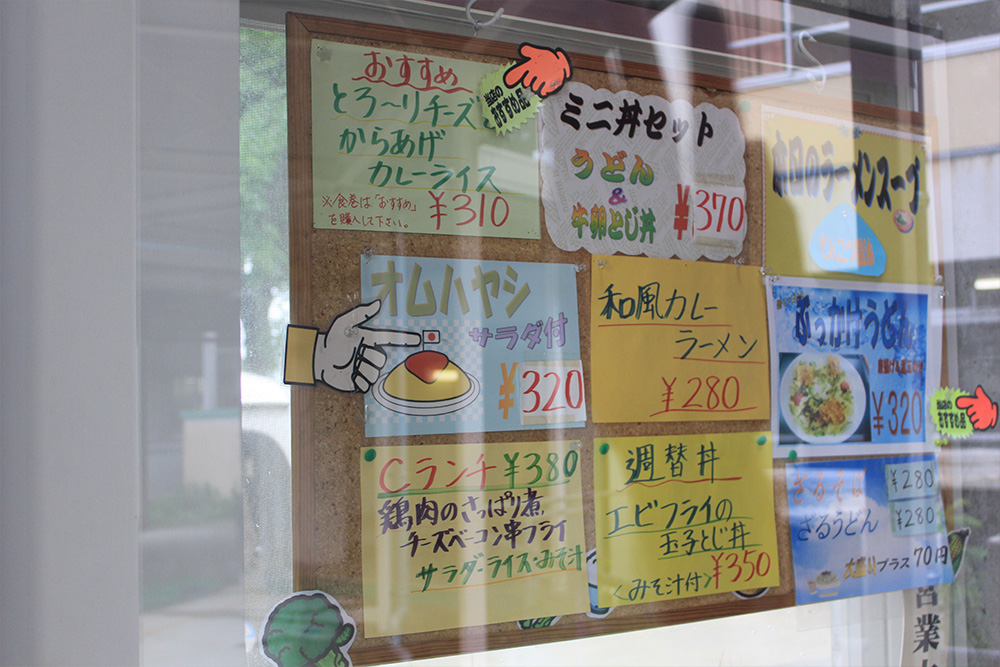 おすすめ
とろ～りチーズ
からあげ
カレーライス
※食券は「おすすめ」
を購入して下さい。
¥310
当店の
おすすめ品
ミニ丼セット
うどん
&
牛卵とじ丼
¥370
本日のラーメンスープ
オムハヤシ
サラダ付
¥320
和風カレー
ラーメン
¥280
ぶっかけうどん
¥320
当店の
おすすめ品
Cランチ ¥380
鶏肉のさっぱり煮,
チーズベーコン串フライ
サラダ・ライス・みそ汁
週替丼
エビフライの
玉子とじ丼
<みそ汁付> ¥350
ざるそば ¥280
ざるうどん ¥280
大盛りプラス70円
営業